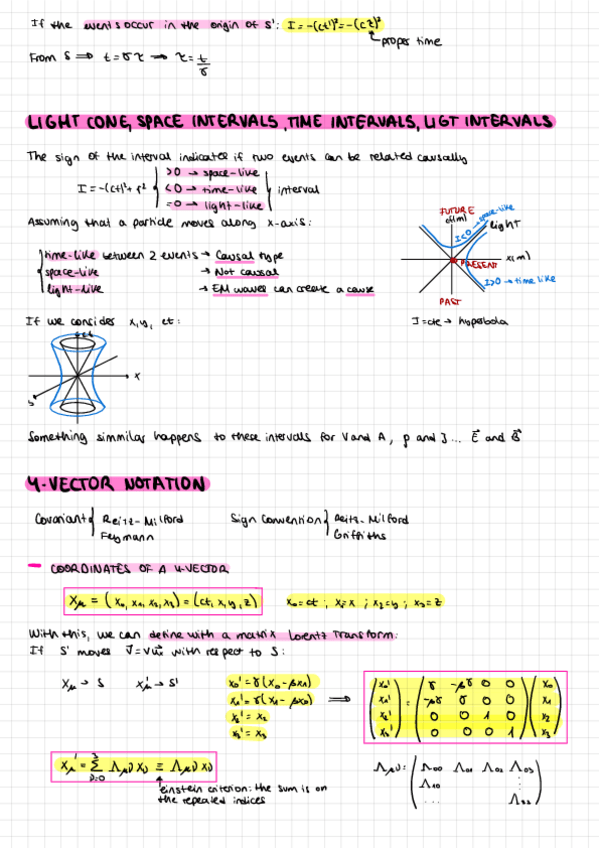 If the events occur in the origin of S': I = -(ct')² = -(cτ)²
proper time
From S ⟹ t = γτ → τ = t/γ
LIGHT CONE, SPACE INTERVALS, TIME INTERVALS, LIGT INTERVALS
The sign of the interval indicates if two events can be related causally
I = -(ct)² + r² { >0 → space-like
<0 → time-like } interval
=0 → light-like
Assuming that a particle moves along x-axis:
time-like between 2 events → Causal type
space-like → Not causal
light-like → EM waves can create a cause
FUTURE
ct(m)
I<0 → space-like
light
x(m)
PRESENT
I>0 → time like
PAST
If we consider x, y, ct:
I = cte → hyperbola
ct
x
Something simmilar happens to these intervals for V and A, p and J... E⃗ and B⃗
4-VECTOR NOTATION
Covariant { Reitz-Milford
Feymann
Sign Convention } Reitz-Milford
Griffiths
COORDINATES OF A 4-VECTOR
Xμ = (x₀, x₁, x₂, x₃) = (ct, x, y, z) x₀=ct ; x₁=x ; x₂=y ; x₃=z
With this, we can define with a matrix Lorentz Transform.
If S' moves v⃗ = v u⃗x with respect to S:
Xμ → S X'μ → S'
x₀' = γ(x₀ - βx₁)
x₁' = γ(x₁ - βx₀)
x₂' = x₂
x₃' = x₃
⟹
(x₀') = (γ -βγ 0 0) (x₀)
(x₁') (-βγ γ 0 0) (x₁)
(x₂') (0 0 1 0) (x₂)
(x₃') (0 0 0 1) (x₃)
Xμ' = Σ³ν=0 Λμν Xν ≡ Λμν Xν
einstein criterion: the sum is on
the repeated indices
Λμν = (Λ₀₀ Λ₀₁ Λ₀₂ Λ₀₃
Λ₁₀ ⋮
... Λ₃₃)